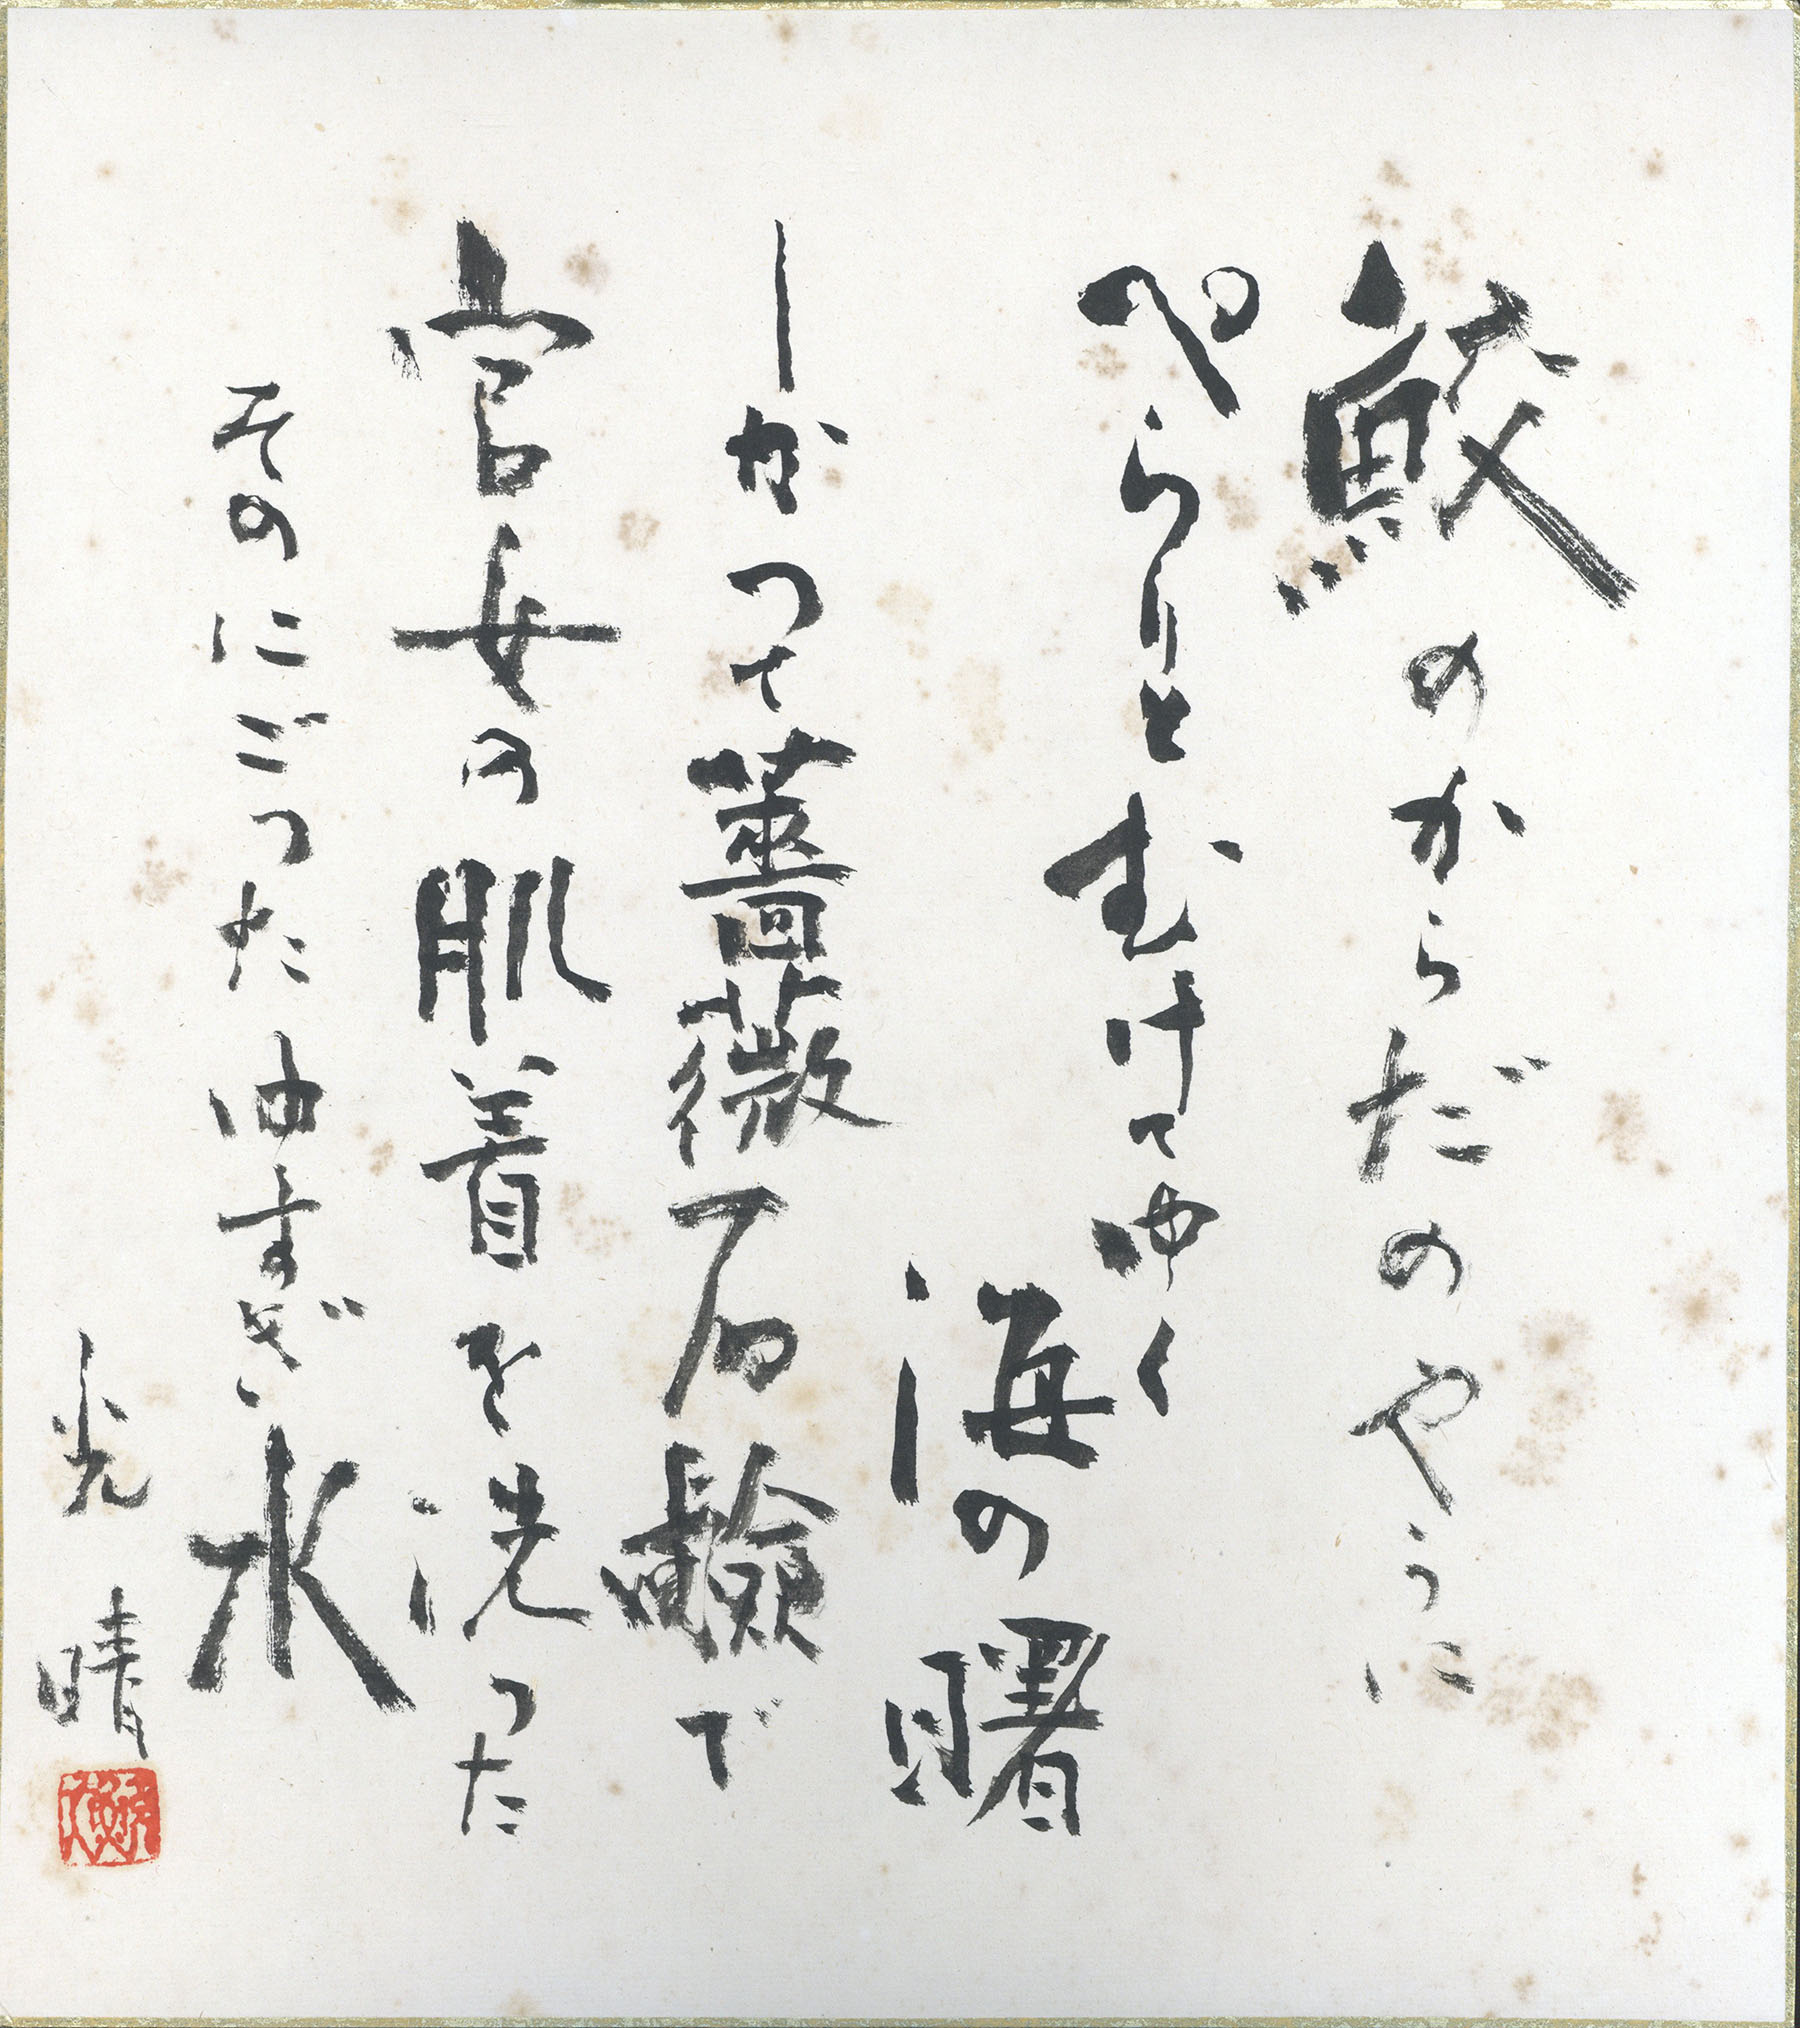 鮫のからだのやうに
ぺらりとむけてゆく
海の曙
―かつて薔薇石鹸で
官女の肌着を洗った
そのにごつたゆすぎ水
光晴